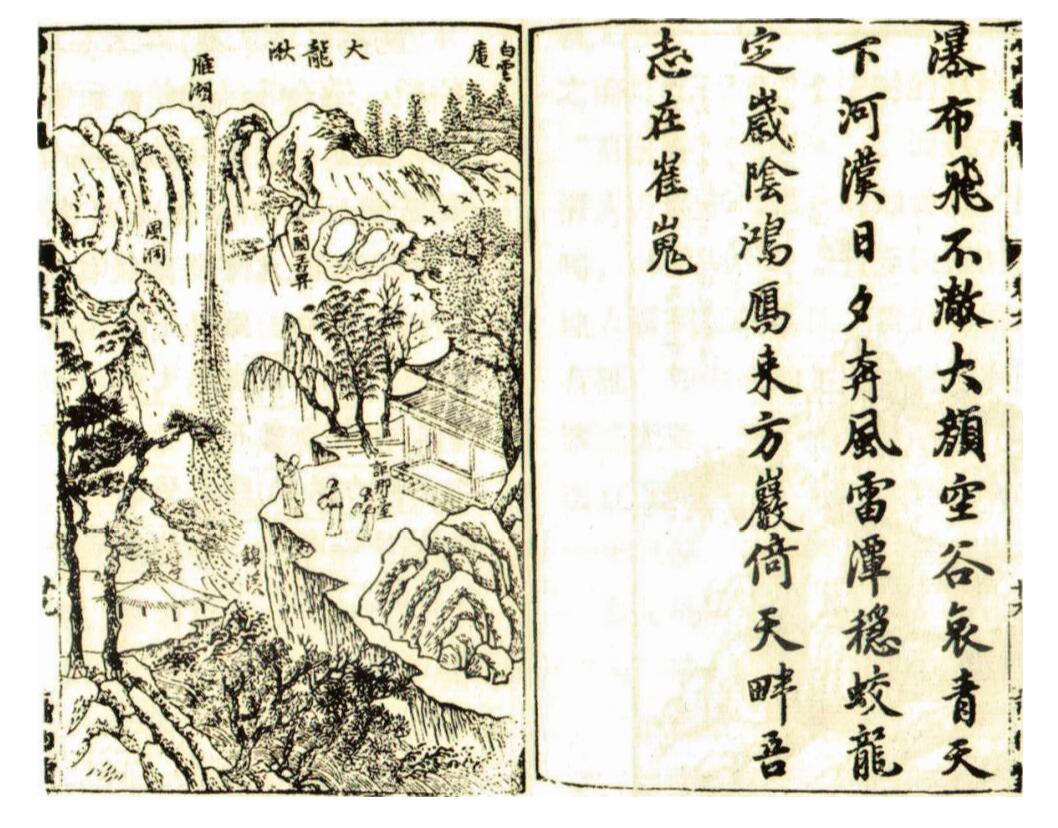 瀑布飛不澈大顏空谷哀青天
下河漢日夕奔風雷潭穩蛟龍
定歲陰鴻鴈來方巖倚天畔吾
志在崔嵬
白雲庵
大龍湫
雁湖
風洞